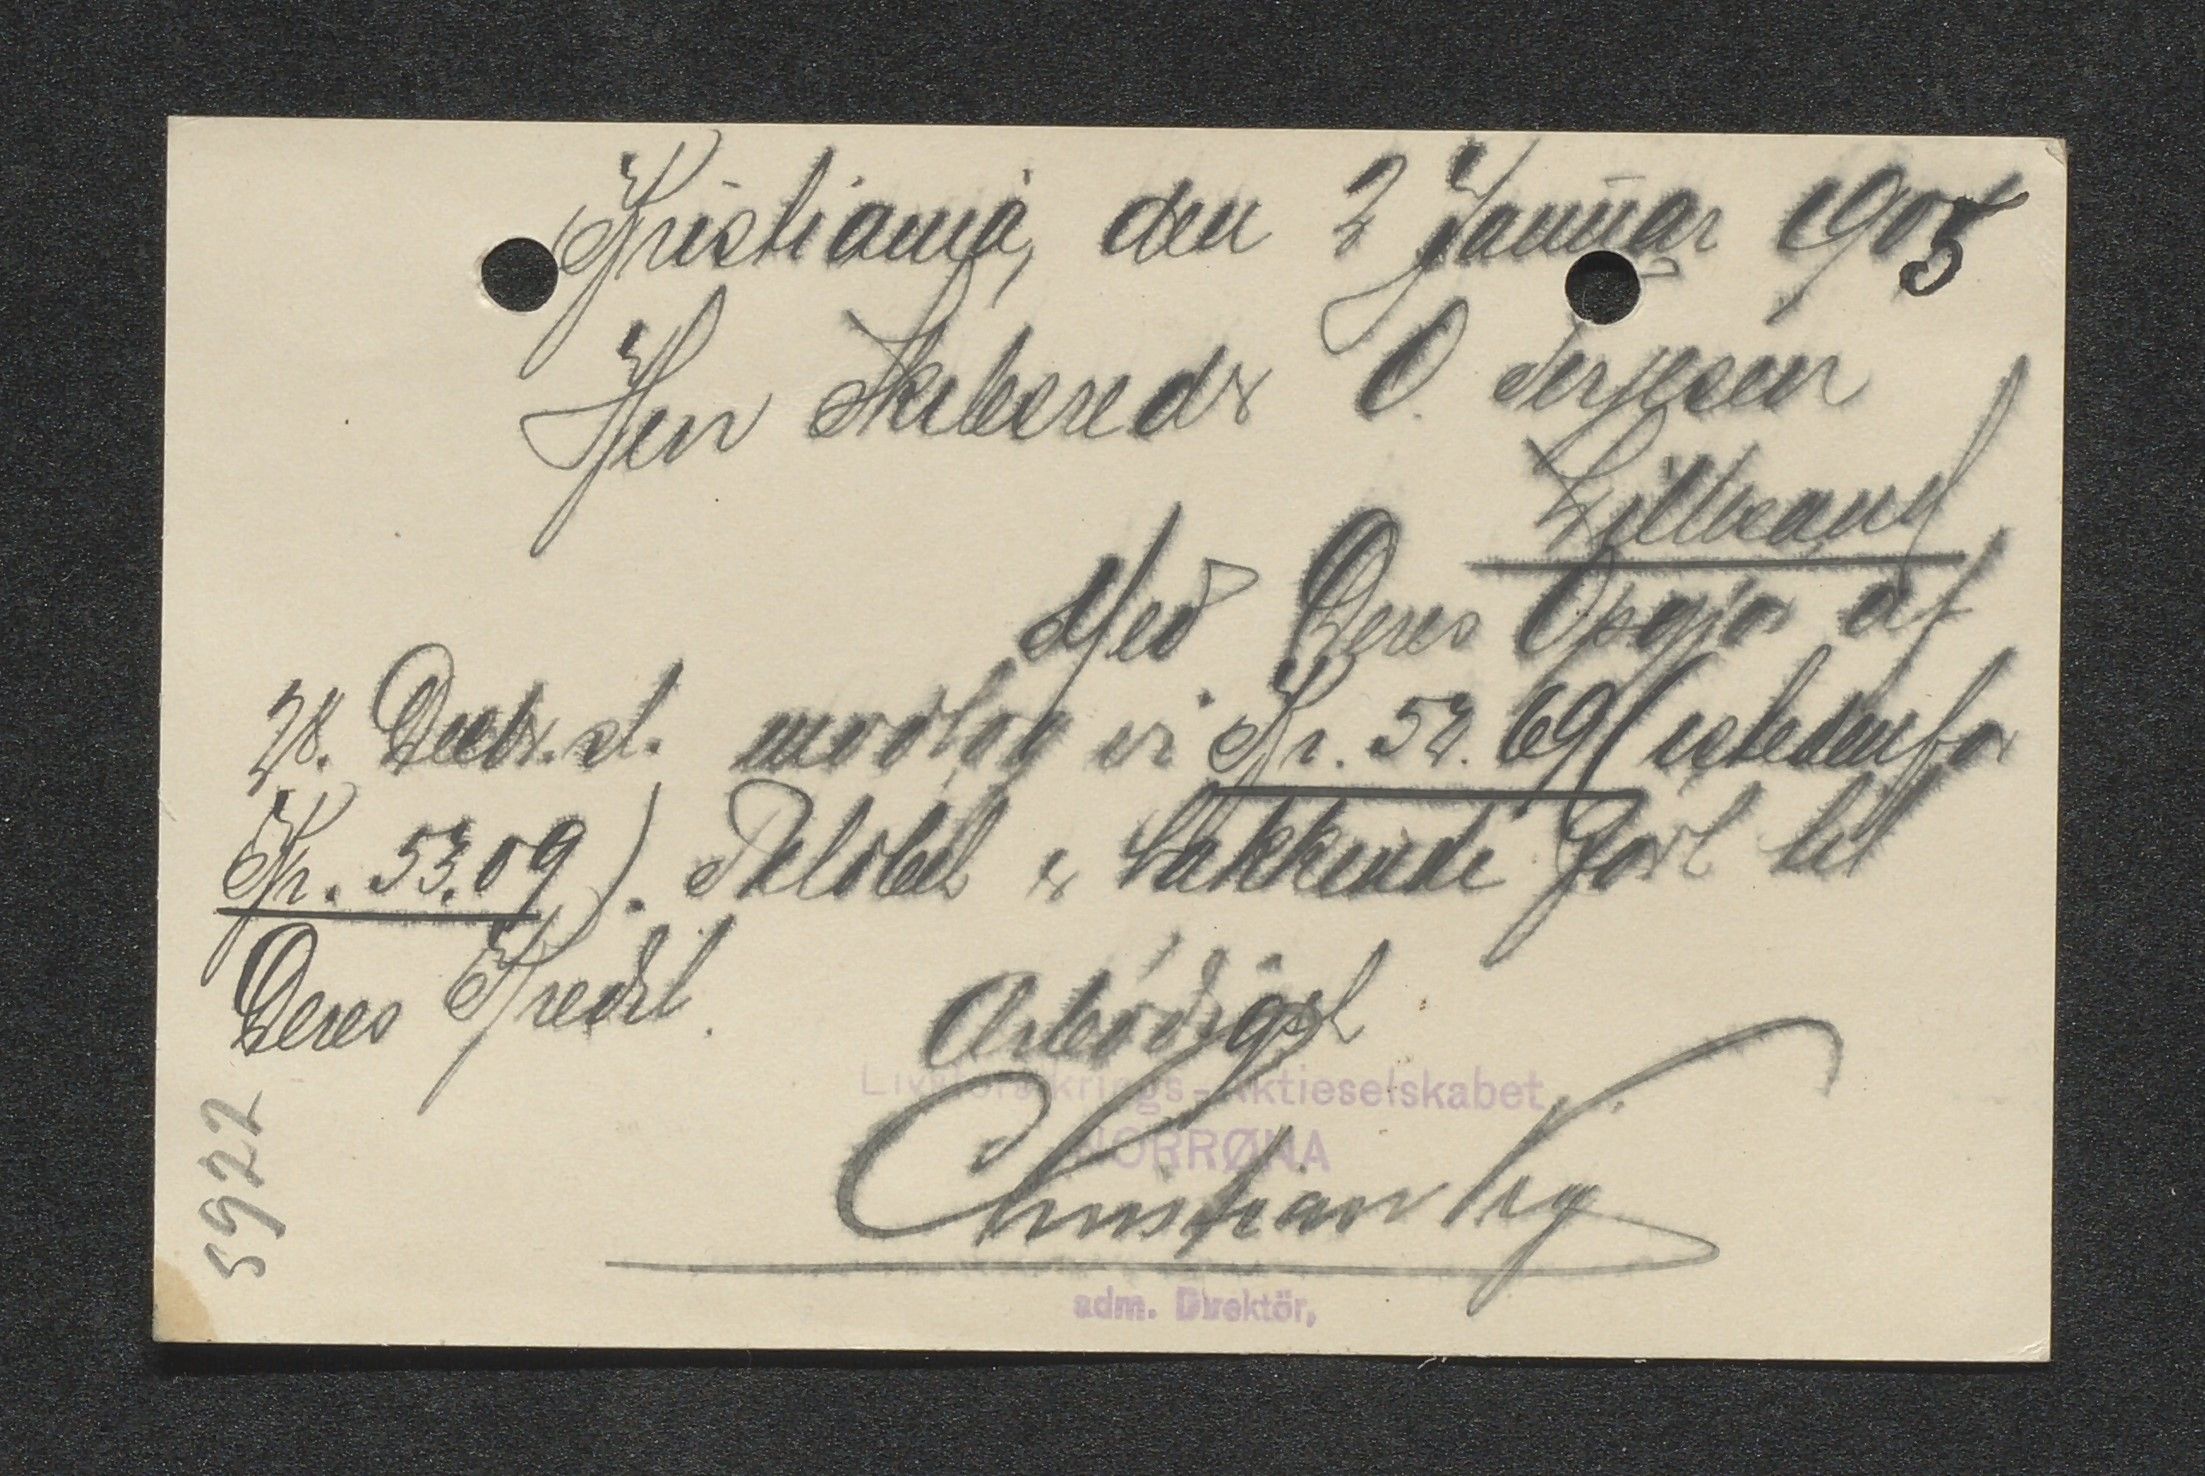 Kristiania, den 2 Januar 1905
Herr Skibsredr O. Terjesen
Lillesand
Med Deres Opgjør af
28. Decbr. d. modtog vi Kr. 52.69 (istedenfor
Kr. 53.09). Beløbet er takkende ført til
Deres Kredit.
Ærbødigst
Livsforsikrings-Aktieselskabet
NORRØNA
Christian
adm. Direktör,
5922